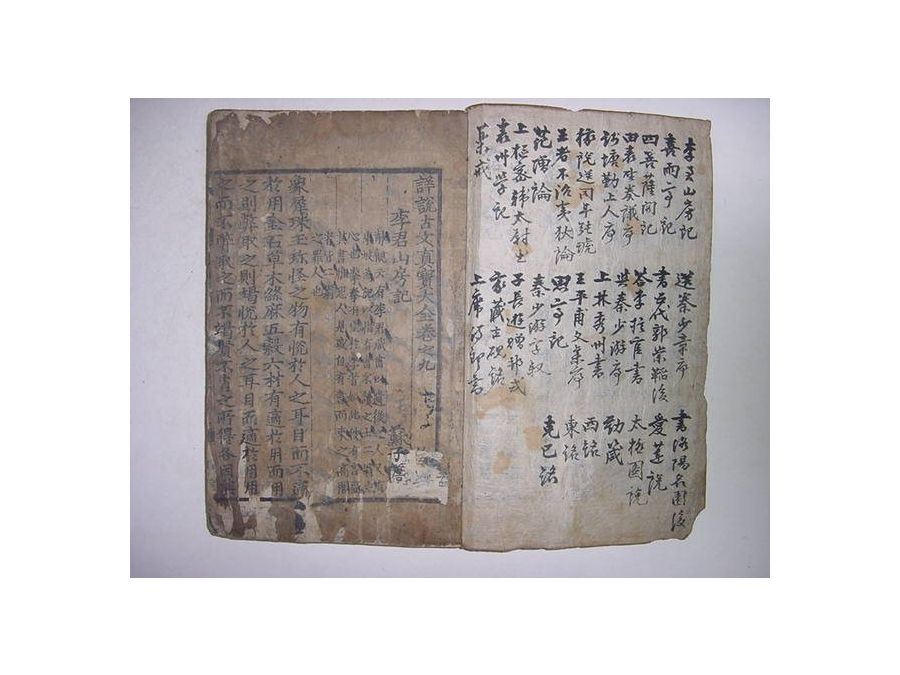 李君山房記
喜雨亭記
四菩薩閣記
田表聖奏議序
錢塘勤上人序
稼說送同年張琥
王者不治夷狄論
范增論
上樞密韓太尉書
袁州學記
藥戒
送秦少章序
書五代郭崇韜後
答李推官書
與秦少游序
上林秀州書
王平甫文集序
思亭記
秦少游字敍
子長遊贈邦式
家藏古硯銘
上席侍郎書
書洛陽名園後
愛蓮說
太極圖說
動箴
西銘
東銘
克己銘
詳說古文真寶大全卷之九
李君山房記
蘇子瞻
象犀珠玉珍怪之物有悅於人之耳目而不適
於用金石草木絲麻五穀六材有適於用而用
之則弊取之則竭悅於人之耳目而適於用用
之而不弊取之而不竭賢不肖之所得各因其